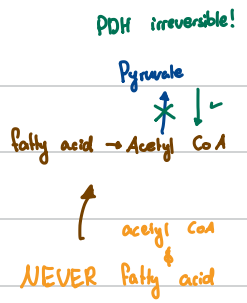 PDH irreversible!
Pyruvate
fatty acid → Acetyl CoA
acetyl CoA
NEVER fatty acid